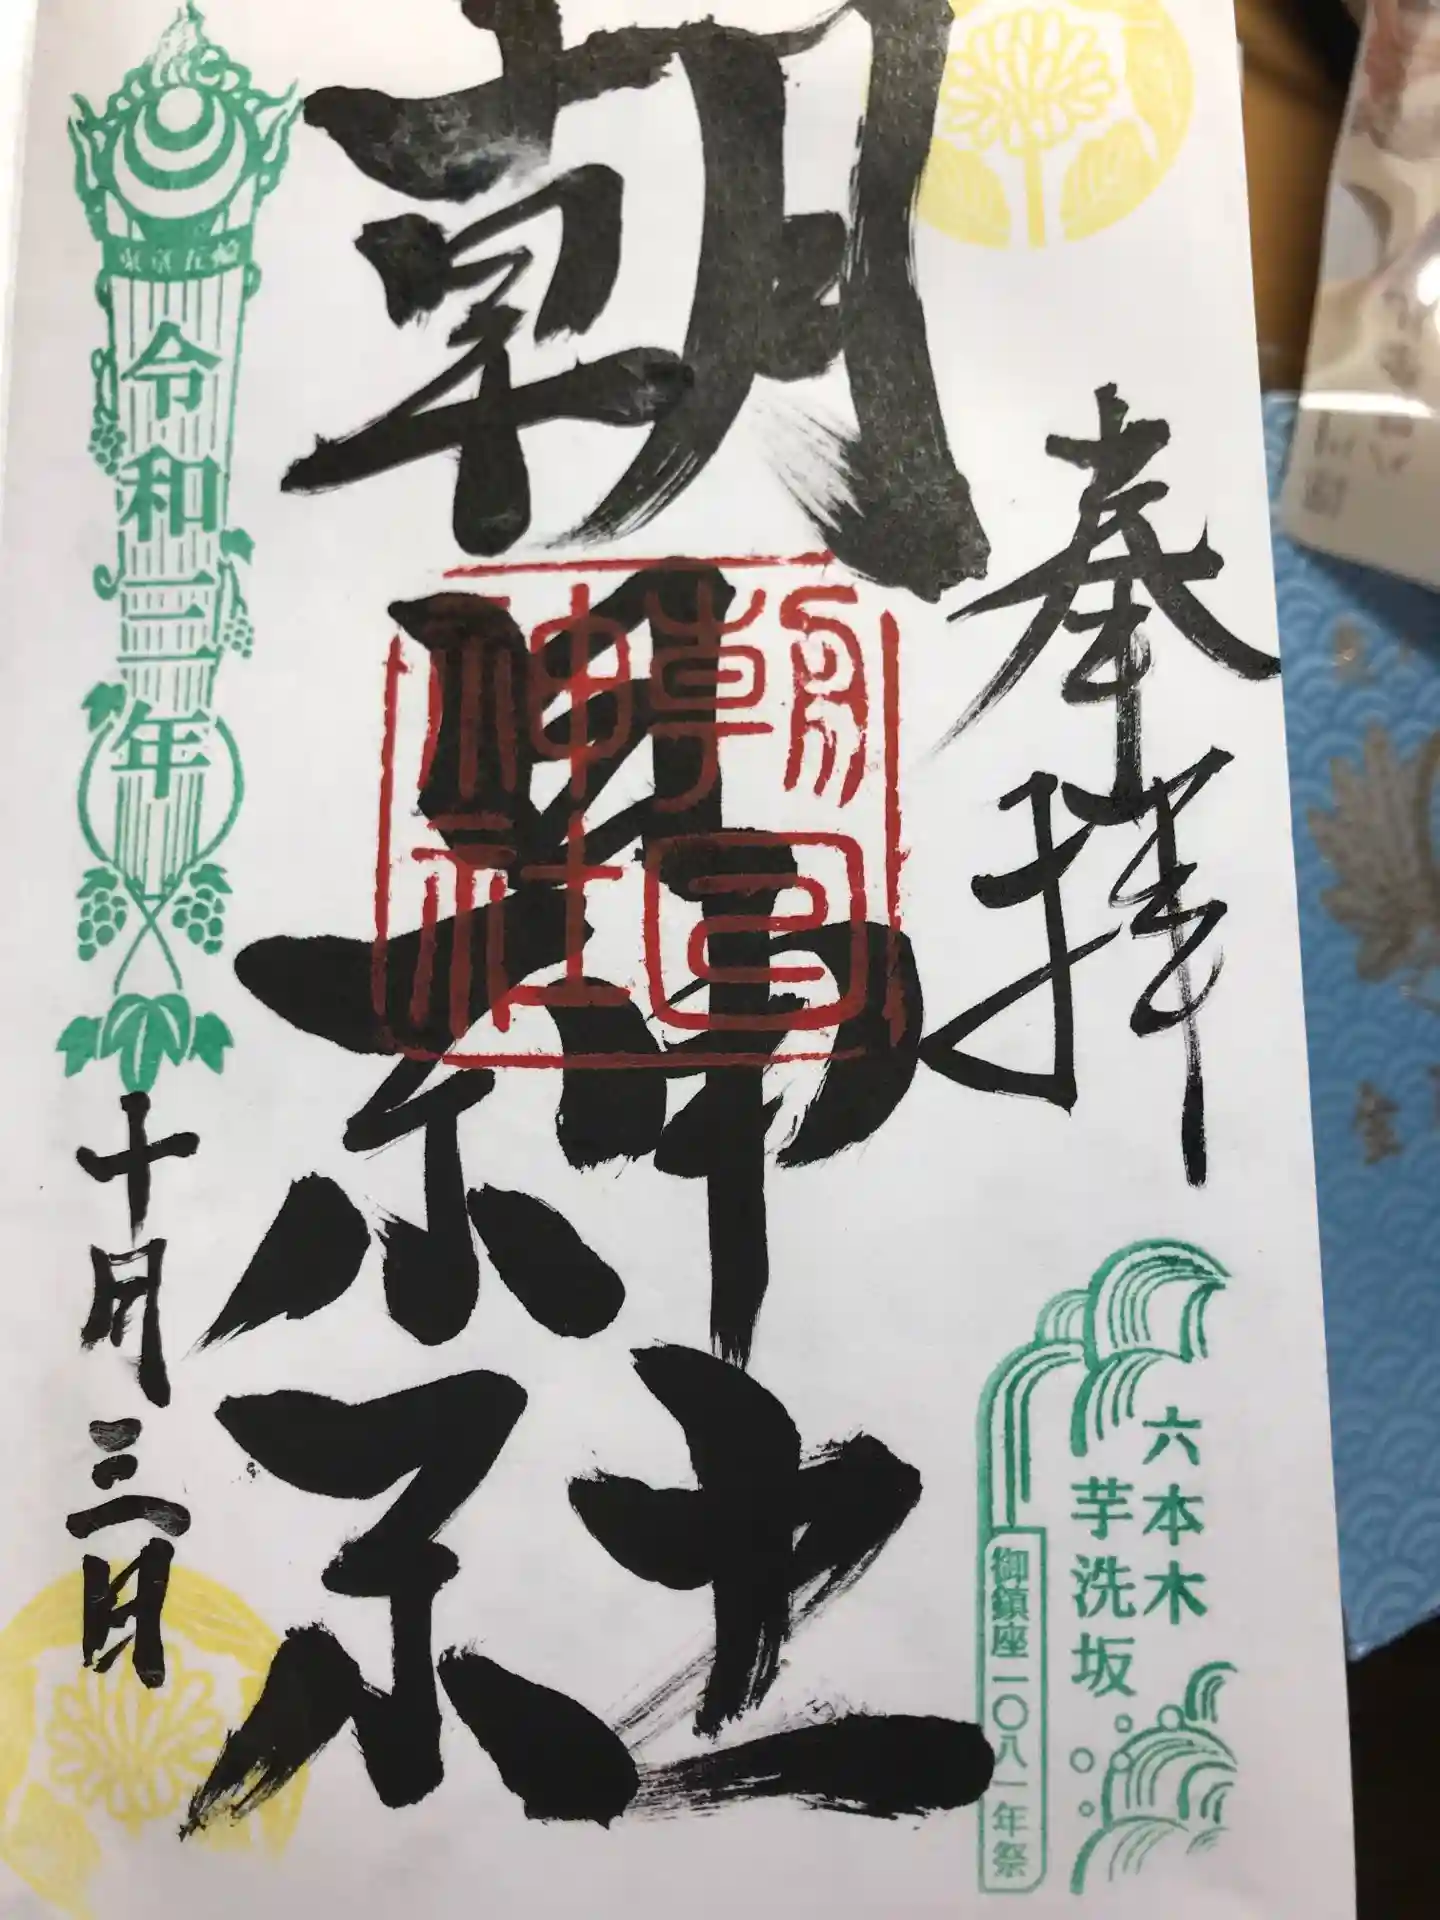 奉拝
朝日神社
朝日神社
六本木
芋洗坂
御鎮座一〇八一年祭
令和三年
十月三日